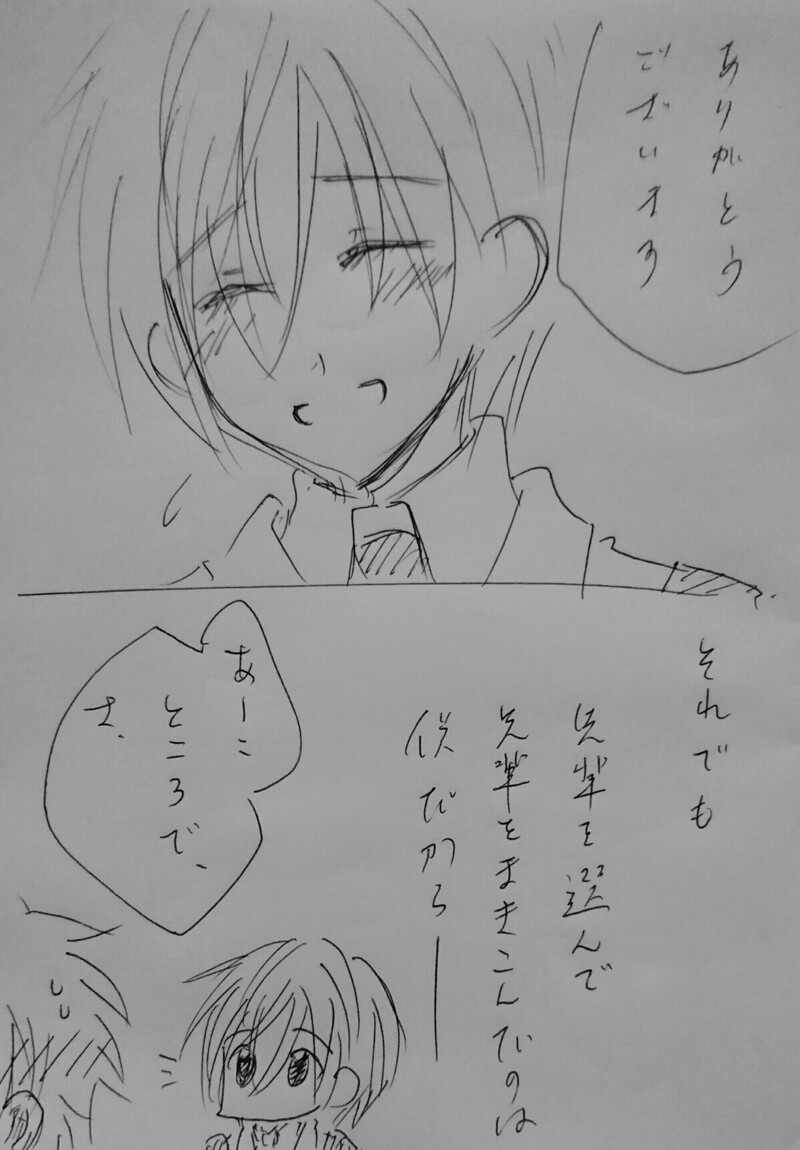 ありがとう
ございます
それでも
先輩を選んで
先輩をまきこんだのは
僕だから——
あーこ
ところで、
さ、